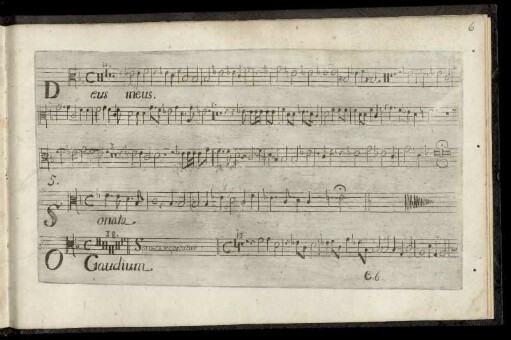 6
Deus meus.
5.
Sonata
18. 13
O Gaudium
C. 6.